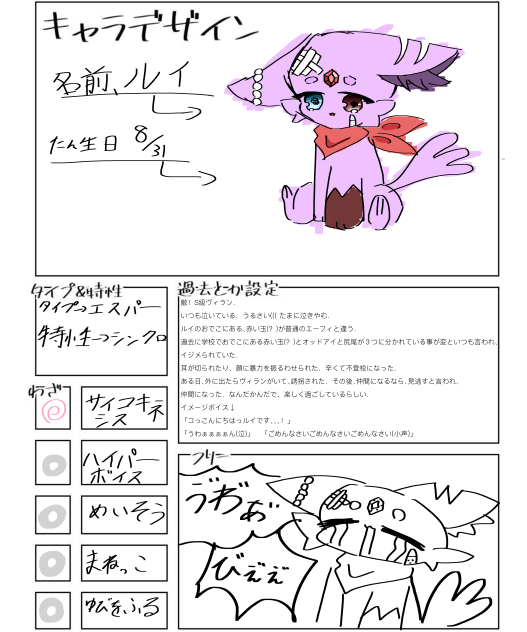 キャラデザイン
名前、ルイ
たん生日 8/31
タイプ&特性
タイプ→エスパー
特性→シンクロ
わざ
サイコキネシス
ハイパーボイス
めいそう
まねっこ
ゆびをふる
過去とか設定
敵！S級ヴィラン.
いつも泣いている. うるさい((( たまに泣きやむ.
ルイのおでこにある､赤い玉(? )が普通のエーフィと違う.
過去に学校でおでこにある赤い玉(? )とオッドアイと尻尾が３つに分かれている事が変といつも言われ、
イジメられていた.
耳が切られたり、顔に暴力を振るわせられた. 辛くて不登校になった.
ある日､外に出たらヴィランがいて､誘拐された. その後､仲間になるなら､見逃すと言われ､
仲間になった. なんだかんだで、楽しく過ごしているらしい.
イメージボイス↓
「こっこんにちはっルイです､､､！」
「うわぁぁぁぁん(泣)」 「ごめんなさいごめんなさいごめんなさい(小声)」
フリー
ゔわ゙ぁ゙
びぇぇ